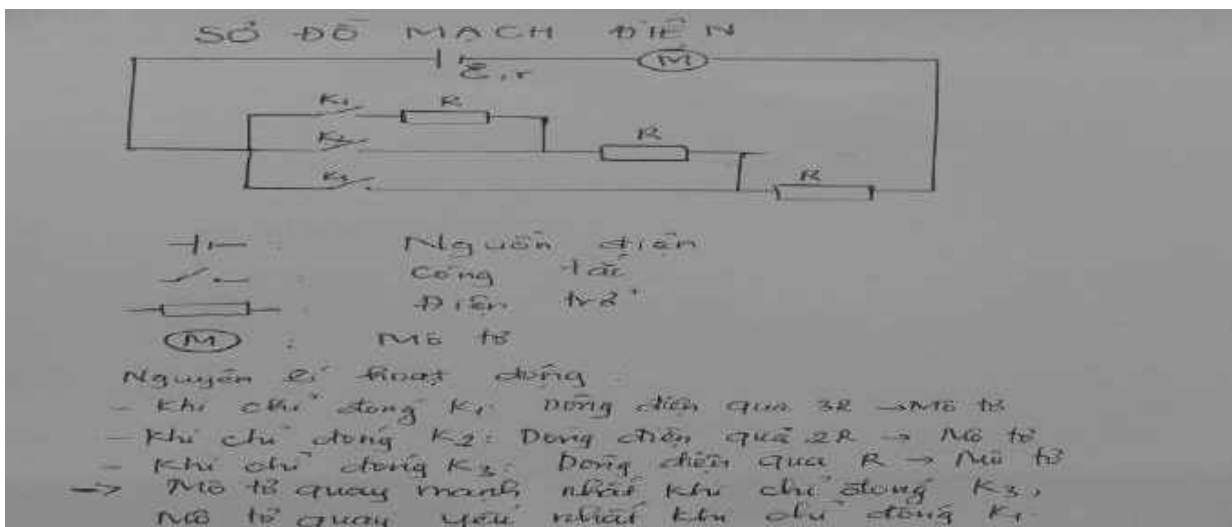 SƠ ĐỒ MẠCH ĐIỆN
M
E, r
K1 R
K2 R
K3 R
: Nguồn điện
: Công tắc
: Điện trở
M : Mô tơ
Nguyên lí hoạt động
- Khi chỉ đóng K1: Dòng điện qua 3R → Mô tơ
- Khi chỉ đóng K2: Dòng điện qua 2R → Mô tơ
- Khi chỉ đóng K3: Dòng điện qua R → Mô tơ
→ Mô tơ quay mạnh nhất khi chỉ đóng K3,
Mô tơ quay yếu nhất khi chỉ đóng K1.